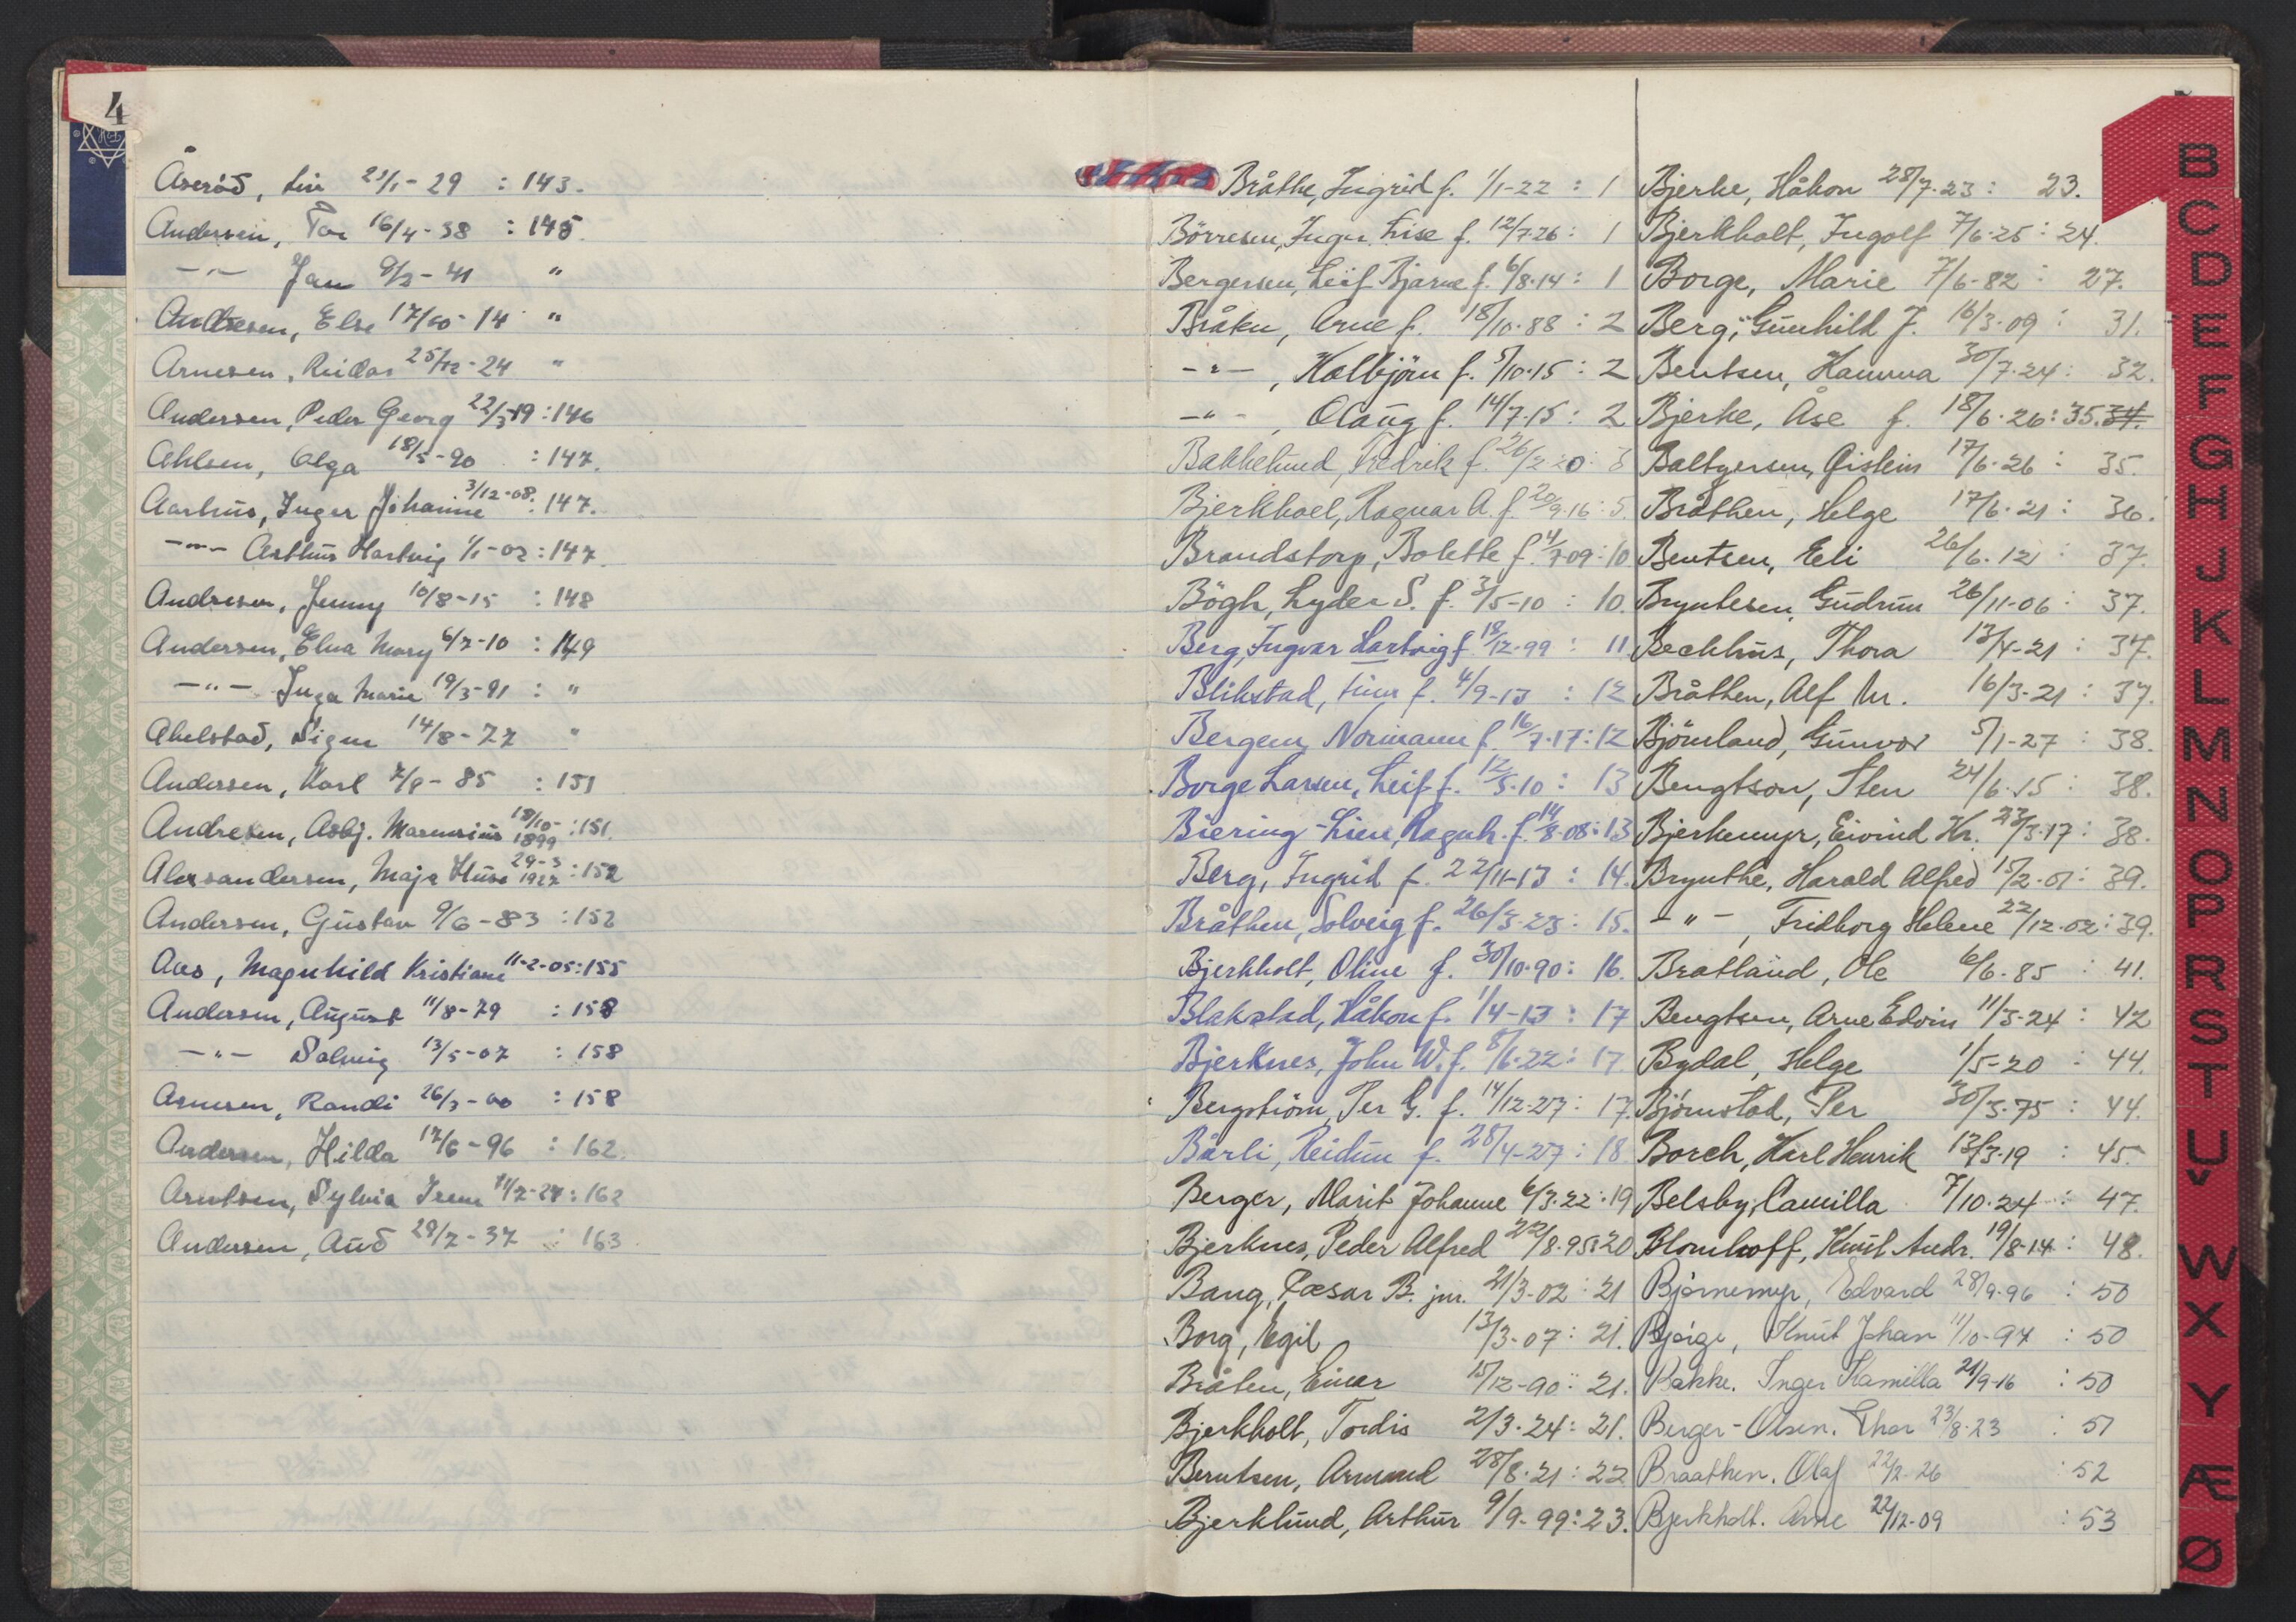 4
Åserød, Liv 21/1-29 : 143.
Andersen, Tor 16/4-38 : 145.
-"- Jan 9/2-41 "
Andresen, Else 17/10-14 "
Arnesen, Reidar 25/12-24 "
Andersen, Peder Georg 22/3-19 : 146
Ahlsen, Olga 18/5-90 : 147.
Aarhus, Inger Johanne 3/12-08. : 147.
-"- Arthur Hartvig 1/1-02 : 147.
Andresen, Jenny 10/8-15 : 148
Andersen, Elna Mary 6/7-10 : 149
-"- Inga Marie 19/3-91 : "
Abelstad, Signe 14/8-77 "
Andersen, Karl 7/8-85 : 151
Andresen, Asbj. Marensius 18/10-1899 : 151.
Alexandersen, Maja Huse 29-3 1927 : 152
Andersen, Gustav 9/6-83 : 152
Aas, Magnhild Kristiane 11-2-05 : 155
Andersen, August 11/8-79 : 158
-"- Solveig 13/5-07 : 158
Arnesen, Randi 26/3-00 : 158
Andersen, Hilda 17/6-96 : 162.
Arntsen, Sylvia Irene 11/7-27 : 162
Andersen, Aud 29/7-37 : 163
Bråthe, Ingrid f. 1/1-22 : 1
Börresen, Inger Lise f. 12/7-26 : 1
Bergersen, Leif Bjarne f. 6/8-14 : 1
Bråten, Arne f. 18/10-88 : 2
-"-, Kolbjörn f. 5/10-15 : 2
-"-, Olaug f. 14/7-15 : 2
Bakkelund, Fredrik f. 26/2 20 : 3
Bjerkhoel, Ragnar A. f. 20/9-16 : 5.
Brandstorp, Bolette f. 4/7-09 : 10
Bögh, Lyder S. f. 3/5-10 : 10.
Berg, Ingvar Hartvig f. 18/12-99 : 11
Blikstad, Finn f. 4/9-13 : 12
Bergem, Normann f. 16/7-17 : 12
Borge Larsen, Leif f. 12/5-10 : 13
Biering-Lien, Ragnh. f. 14/8-08 : 13
Berg, Ingrid f. 22/11-13 : 14.
Bråthen, Solveig f. 26/3-23 : 15.
Bjerkholt, Oline f. 30/10-90 : 16.
Blakstad, Håkon f. 1/4-13 : 17
Bjerknes, John W. f. 8/6-22 : 17
Bergström, Per G. f. 14/12-27 : 17.
Bårli, Reidun f. 28/4-27 : 18
Berger, Marit Johanne 6/3-22 : 19
Bjerknes, Peder Alfred 22/8-95 : 20
Bang, Cæsar B. jnr. 21/3-02 : 21
Borg, Egil 13/3-07 : 21.
Bråten, Einar 15/12-90 : 21.
Bjerkholt, Tordis 2/3-24 : 21.
Berntsen, Armand 28/8-21 : 22
Bjerklund, Arthur 9/9-99 : 23.
Bjerke, Håkon 28/7-23 : 23.
Bjerkholt, Ingolf 7/6-25 : 24.
Borge, Marie 7/6-82 : 27.
Berg, Gunhild J. 16/3-09 : 31.
Bentsen, Hanna 30/7-24 : 32.
Bjerke, Åse f. 18/6-26 : 35. 34.
Baltzersen, Öistein 17/6-26 : 35.
Bråthen, Helge 17/6-21 : 36.
Bentsen, Eli 26/6-12 : 37.
Bryntesen, Gudrun 26/11-06 : 37.
Beckhus, Thora 13/4-21 : 37.
Bråthen, Alf Nr. 16/3-21 : 37.
Björnland, Gunvor 5/1-27 : 38.
Bengtson, Sten 24/6-15 : 38.
Bjerkemyr, Eivind Kr. 23/3-17 : 38.
Brynthe, Harald Alfred 15/2-01 : 39.
-"-, Fridborg Helene 22/12-02 : 39.
Bratland, Ole 6/6-85 : 41.
Bengtsen, Arne Edvin 11/3-24 : 42
Bydal, Helge 1/5-20 : 44.
Bjørnstad, Per 30/3-75 : 44.
Borch, Karl Henrik 13/3-19 : 45.
Belsby, Camilla 7/10-24 : 47.
Blomhoff, Knut Andr. 19/8-14 : 48.
Bjørnemyr, Edvard 28/9-96 : 50
Bjørge, Knut Johan 11/10-97 : 50
Bakke. Inger Kamilla 21/9-16 : 50
Berger-Olsen. Thor 23/8-23 : 51
Braathen. Olaf 22/2-26 : 52
Bjerkholt. Arne 22/12-09 : 53
B
C
D
E
F
G
H
J
K
L
M
N
O
P
R
S
T
U
V
W
X
Y
Æ
Ø